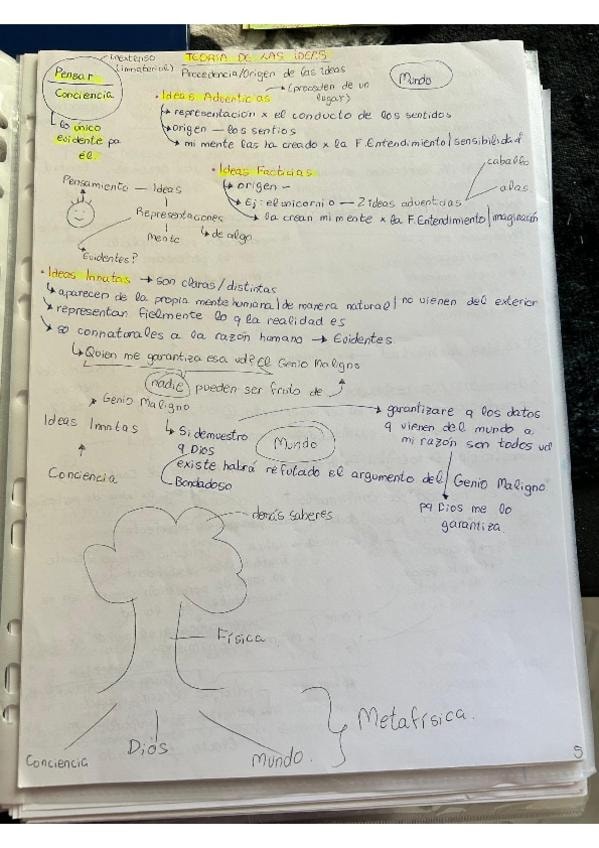 inextenso
(inmaterial)
TEORIA DE LAS IDEAS
Pensar
Conciencia
Procedencia/Origen de las ideas
Mundo
(proceden de un
lugar)
• Ideas Adventicias
representacion x el conducto de los sentidos
origen — los sentios
mi mente las ha creado x la F. Entendimiento/sensibilidad
lo único
evidente pa
él.
• Ideas Facticias
origen -
Ej: el unicornio — 2 ideas adventicias
caballo
alas
la crean mi mente x la F. Entendimiento/imaginación
Pensamiento — Ideas
Representaciones
mente
de algo
Evidentes?
• Ideas Innatas → son claras/distintas
aparecen de la propia mente humana/de manera natural/ no vienen del exterior
representan fielmente lo q la realidad es
so connaturales a la razón humano → Evidentes
Quien me garantiza esa vd? El Genio Maligno
nadie pueden ser fruto de
Genio Maligno
Ideas Inntas
Conciencia
Si demuestro
q Dios
existe habrá refutado el argumento del Genio Maligno
Bondadoso
Mundo
garantizare q los datos
q vienen del mundo a
mi razón son todos vd
pq Dios me lo
garantiza.
demás saberes
Física
Metafísica.
Conciencia
Dios
Mundo.
5